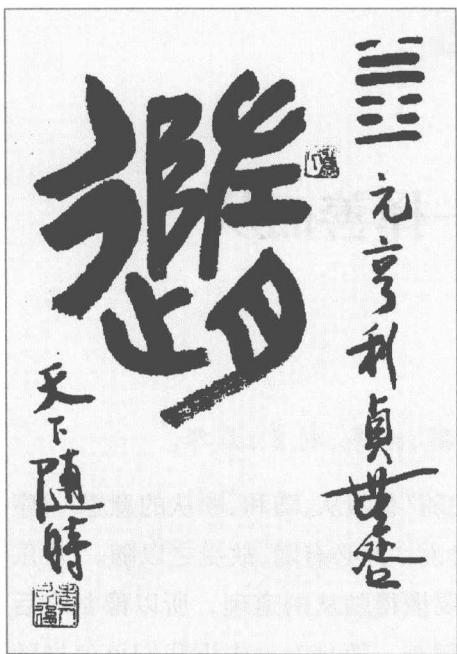 ䷐元亨利貞無咎
隨
天下隨時